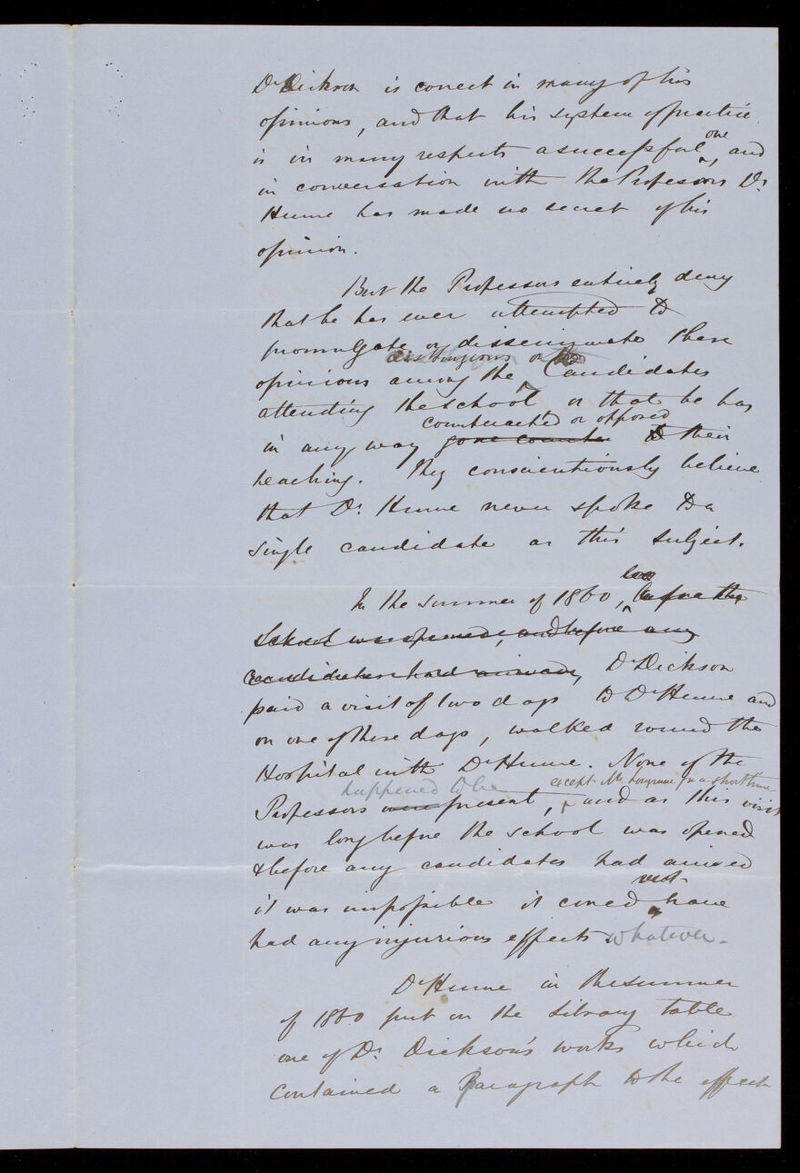 Dr Dickson is correct in many of his
opinions, and that his system of practice
is in many respects a successful one, and
in conversation with the Professors Dr.
Hume has made no secret of his
opinion.
But the Professors entirely deny
that he has ever attempted to
promulgate or disseminate these
opinions among the Candidates
attending the school or that he has
counteracted or opposed
in any way gone counter to their
teaching. They conscientiously believe
that Dr. Hume never spoke to a
single candidate on this subject.
In the summer of 1860, before the
School was opened, and before any
candidates had arrived, Dr Dickson
paid a visit of two days to Dr Hume and
on one of these days, walked round the
Hospital with Dr Hume. None of the
happened to be except Mr. Longmore for a short time
Professors were present, and as this visit
was long before the school was opened
& before any candidates had arrived
it was impossible it could have
had any injurious effects whatever.
Dr Hume in the summer
of 1860 put on the Library table
one of Dr. Dickson's works which
contained a Paragraph to the effect